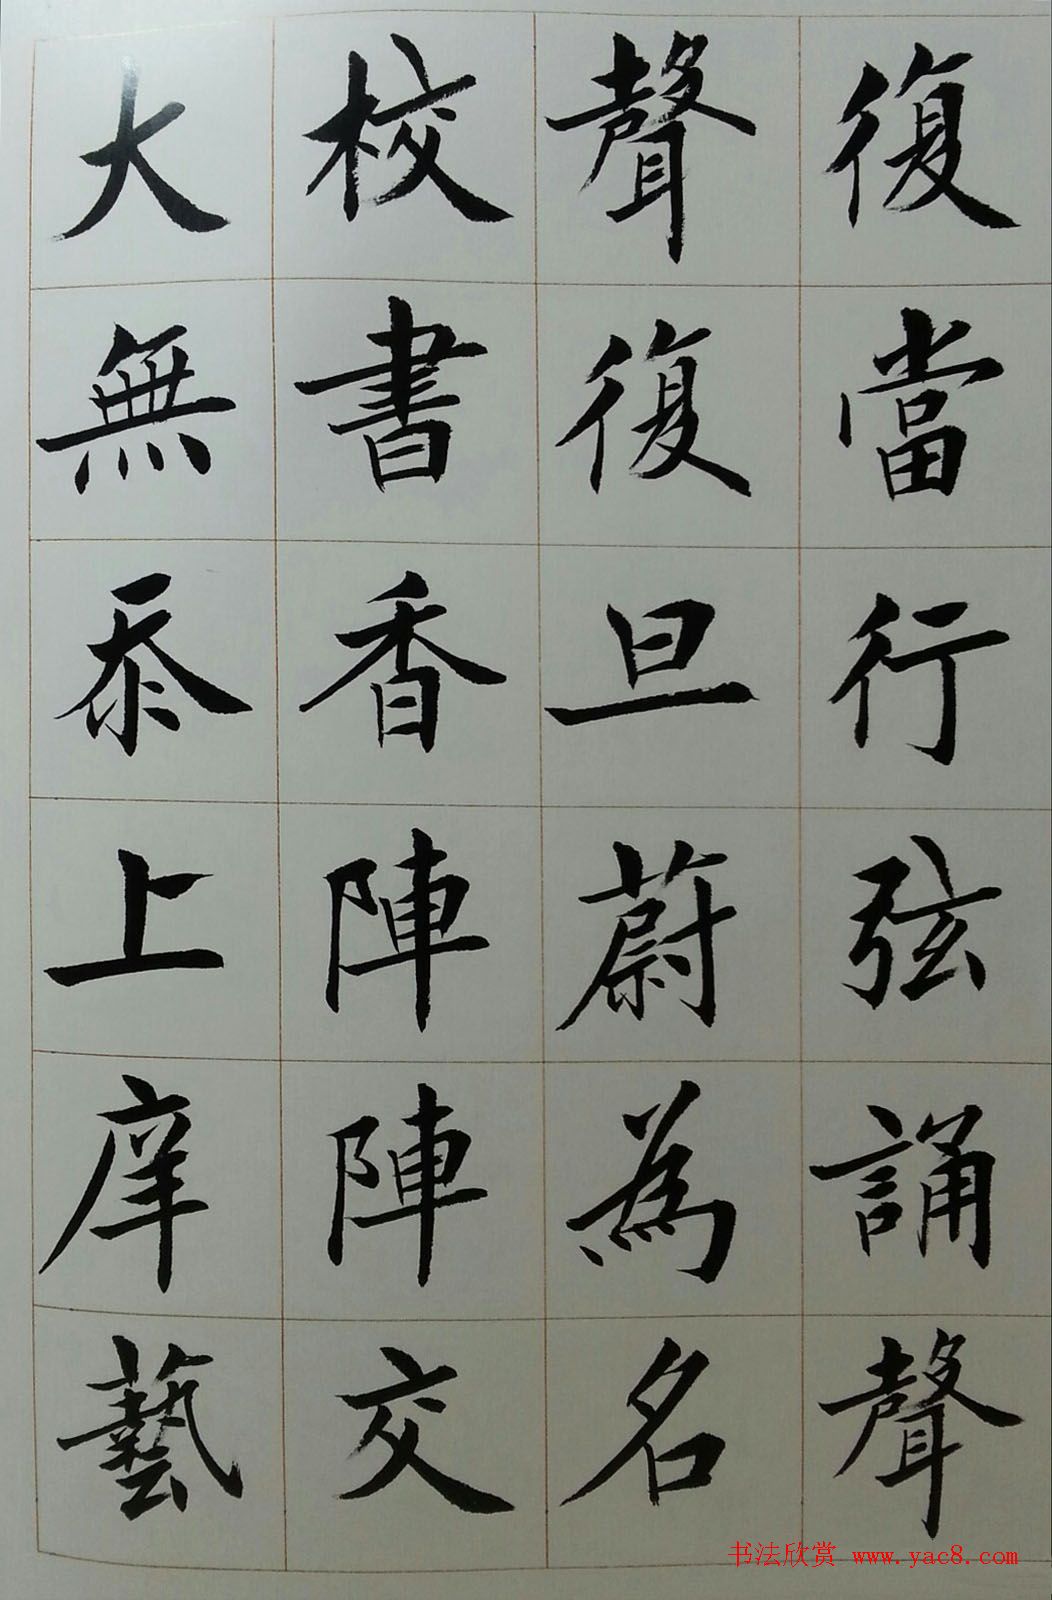 復當行弦誦聲
聲復旦蔚為名
校書香陣陣交
大無忝上庠藝
书法欣赏 www.yac8.com